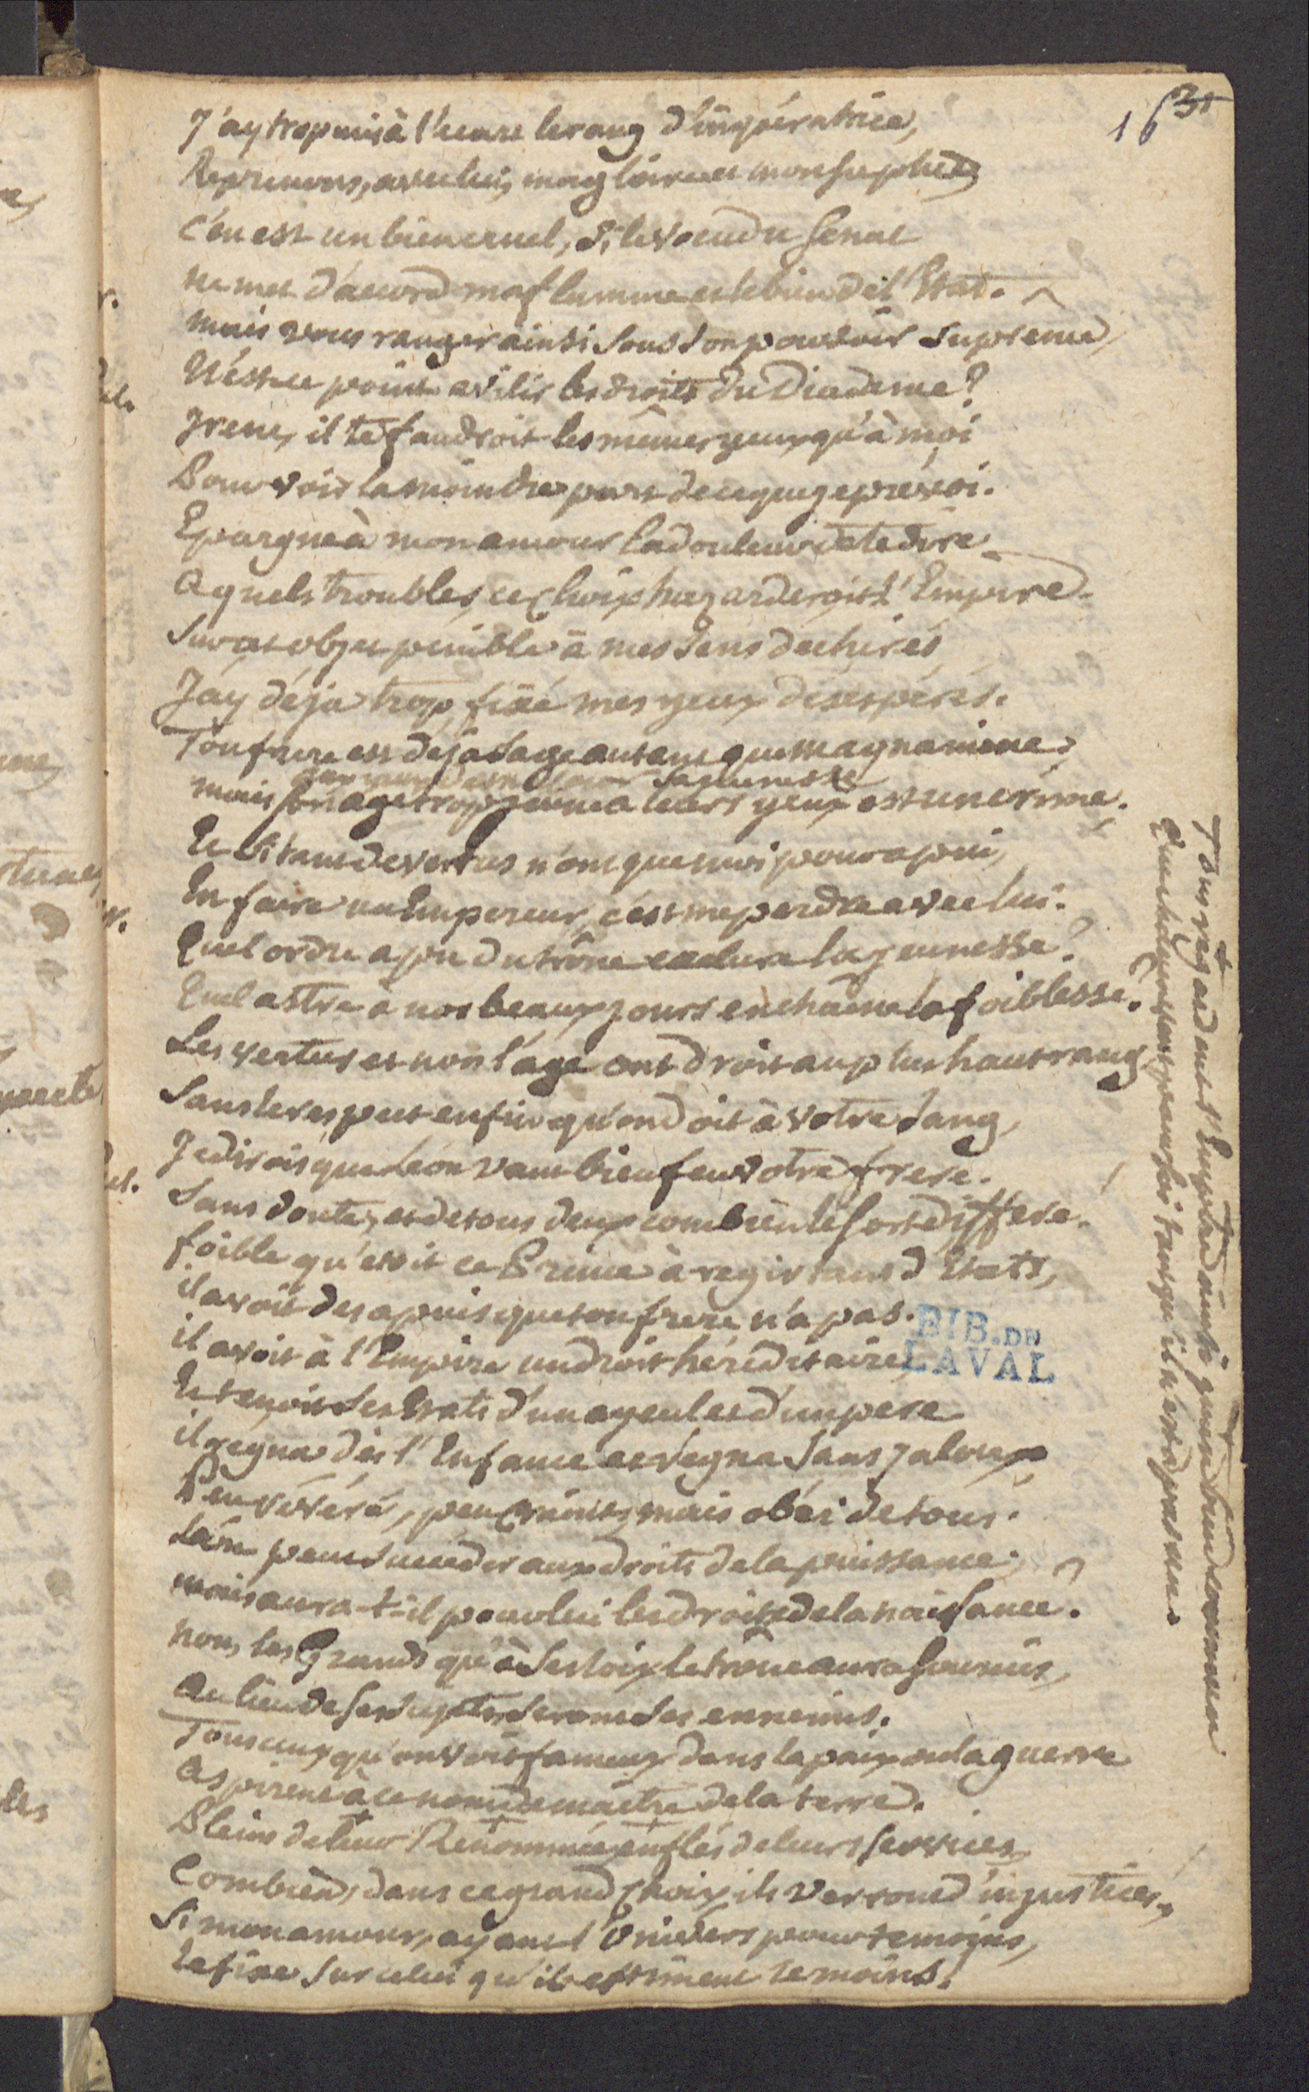 16 31
J'ay trop mis à l'heure le rang d'impératrice,
Reprenons, avec lui, ma gloire et mon suplice
c'en est un bien cruel, si le voeu du Senat
ne met d'accord ma flamme et le bien de l'Etat.
mais vous ranger ainsi sous son pouvoir suprême,
N'est-ce point avilir les droits du Diadême?
Irene, il te faudroit les mêmes yeux qu'à moi
Pour voir la moindre part de ce que je prévoi.
Epargne à mon amour la douleur de te dire
A quels troubles ce choix hazarderoit l'Empire.
sur cet objet penible à mes sens dechirés
J'ay déja trop fixé mes yeux désespérés.
Ton frere est deja sage autant que magnanime,
sa jeunesse
mais son age trop jeune a leurs yeux est un crime.
Et si tant de vertus n'ont que moi pour apui,
En faire un Empereur, c'est me perdre avec lui.
Quel ordre a pu du trône exclure la jeunesse?
Quel astre à nos beaux jours enchaine la foiblesse?
Les vertus et non l'age ont droit au plus haut rang
Sans le respect enfin qu'on doit à votre sang,
Je dirois que Léon vaut bien feu votre frere.
Sans doute, et de tous deux combien le sort differe.
foible qu'etoit ce Prince à regir tant d'Etats,
il avoit des apuis que ton frere n'a pas.
il avoit à l'Empire un droit héréditaire,
BIB. DE
LAVAL
Et tenoit ses Etats d'un ayeul et d'un pere
il regna dès l'Enfance et regna sans jaloux
Peu révéré, peu craint, mais obéi de tous.
Léon peut succeder aux droits de la puissance;
mais aura-t-il pour lui les droits de la naissance?
non, les Grands qu'à ses loix le trône aura soumis,
Au lieu de ses sujets, seront ses ennemis.
Tous ceux qu'on voit fameux dans la paix ou la guerre
Aspirent à ce nom de maître de la terre.
Pleins de leur Renommée, enflés de leurs services,
Combien, dans ce grand choix, ils verront d'injustices,
Si mon amour, ayant l'Univers pour temoins,
Le fixe sur celui qu'ils estiment le moins.
Tous regardent l'Empire
tant qu'il n'est pas